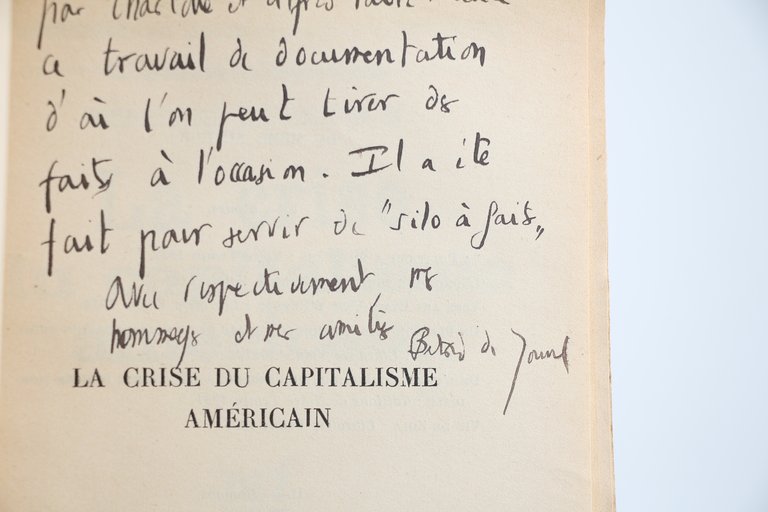 par Charlotte et d'après
ce travail de documentation
d'où l'on peut tirer des
faits à l'occasion. Il a été
fait pour servir de "silo à faits"
Avec respectivement, mes
hommages et mes amitiés
Bertrand de Jouvenel
LA CRISE DU CAPITALISME
AMÉRICAIN